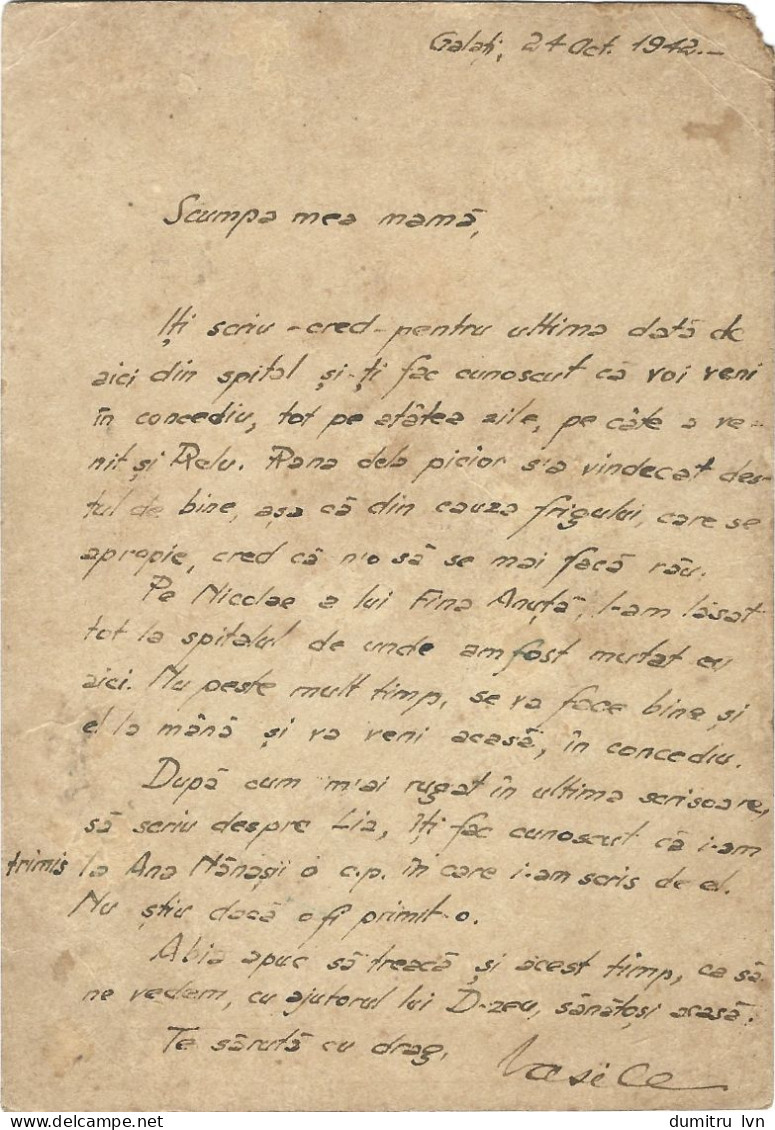 Galați, 24 Oct. 1942.-
Scumpa mea mamă,
Iți scriu -cred- pentru ultima dată de
aici din spital și-ți fac cunoscut că voi veni
în concediu, tot pe atâtea zile, pe câte a ve-
nit și Relu. Rana dela picior s'a vindecat des-
tul de bine, așa că din cauza frigului, care se
apropie, cred că n'o să se mai facă rău.
Pe Nicolae a lui Fina Anuță, l-am lăsat
tot la spitalul de unde am fost mutat eu
aici. Nu peste mult timp, se va face bine și
el la mână și va veni acasă, în concediu.
După cum m'ai rugat în ultima scrisoare,
să scriu despre Lia, îți fac cunoscut că i-am
trimis la Ana Nănașii o c.p. în care i-am scris de el.
Nu știu dacă o fi primit-o.
Abia apuc să treacă și acest timp, ca să
ne vedem, cu ajutorul lui D-zeu, sănătoși acasă.
Te sărută cu drag,
Vasile
dumitru lvn